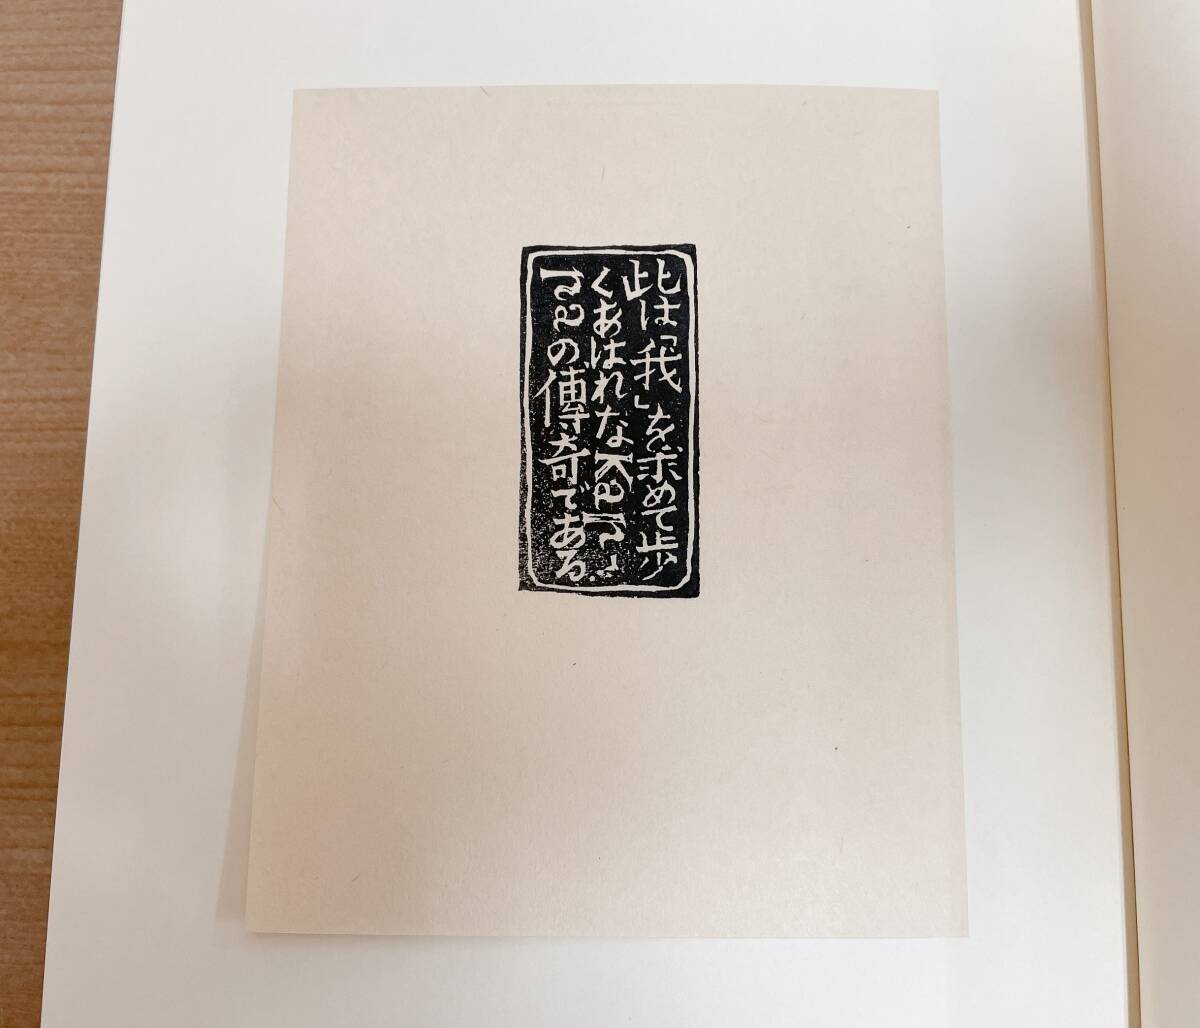 此は「我」を求めて歩
くあはれな
の傳奇である